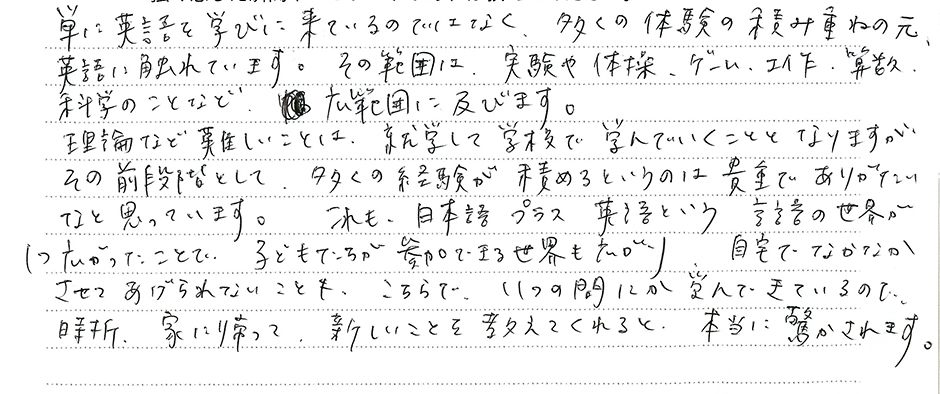 単に英語を学びに来ているのではなく、多くの体験の積み重ねの元、
英語に触れています。その範囲は、実験や体操、ゲーム、工作、算数、
科学のことなど、広範囲に及びます。
理論など難しいことは、就学して学校で学んでいくこととなりますが
その前段階として、多くの経験が積めるというのは貴重でありがたい
なと思っています。これも、日本語プラス英語という言語の世界が
1つ広がったことで、子どもたちが参加できる世界も広がり、自宅でなかなか
させてあげられないことを、こちらで、いつの間にか学んできているので、
時折、家に帰って、新しいことを教えてくれると、本当に驚かされます。